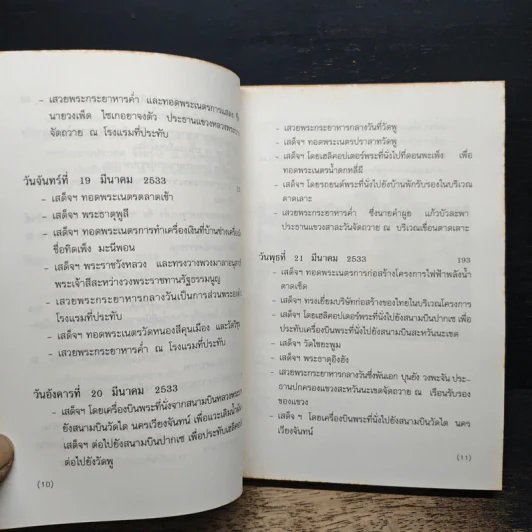 - เสวยพระกระยาหารค่ำ และทอดพระเนตรการแสดง ซึ่ง
นายวงเพ็ด ไซเกอยาจงตัว ประธานแขวงหลวงพระบาง
จัดถวาย ณ โรงแรมที่ประทับ
วันจันทร์ที่ 19 มีนาคม 2533
- เสด็จฯ ทอดพระเนตรตลาดเช้า
- เสด็จฯ พระธาตุพูสี
- เสด็จฯ ทอดพระเนตรการทำเครื่องเงินที่บ้านช่างเครื่องเงิน
ชื่อทิดเพ็ง มะนีพอน
- เสด็จฯ พระราชวังหลวง และทรงวางพวงมาลาอนุสาวรีย์
พระเจ้าสีสะหว่างวงพระราชทานรัฐธรรมนูญ
- เสวยพระกระยาหารกลางวันเป็นการส่วนพระองค์
โรงแรมที่ประทับ
- เสด็จฯ ทอดพระเนตรวัดหนองสีคูนเมือง และวัดใหม่
- เสวยพระกระยาหารค่ำ ณ โรงแรมที่ประทับ
วันอังคารที่ 20 มีนาคม 2533
- เสด็จฯ โดยเครื่องบินพระที่นั่งจากสนามบินหลวงพระบาง
ยังสนามบินวัดไต นครเวียงจันทน์ เพื่อแวะเติมน้ำมัน
เสด็จฯ ต่อไปยังสนามบินปากเซ เพื่อประทับเฮลิคอปเตอร์
ต่อไปยังวัดพู
(10)
- เสวยพระกระยาหารกลางวันที่วัดพู
- เสด็จฯ ทอดพระเนตรปราสาทวัดพู
- เสด็จฯ โดยเฮลิคอปเตอร์พระที่นั่งไปที่ดอนพะเพ็ง เพื่อ
ทอดพระเนตรน้ำตกหลี่ผี
- เสด็จฯ โดยรถยนต์พระที่นั่งไปยังบ้านพักรับรองในบริเวณ
ตาดเลาะ
- เสวยพระกระยาหารค่ำ ซึ่งนายคำผูย แก้วบัวละพา
ประธานแขวงสาละวันจัดถวาย ณ บริเวณเขื่อนตาดเลาะ
วันพุธที่ 21 มีนาคม 2533 193
- เสด็จฯ ทอดพระเนตรการก่อสร้างโครงการไฟฟ้าพลังน้ำ
ตาดเซ็ด
- เสด็จฯ ทรงเยี่ยมบริษัทก่อสร้างของไทยในบริเวณโครงการ
- เสด็จฯ โดยเฮลิคอปเตอร์พระที่นั่งไปยังสนามบินปากเซ เพื่อ
ประทับเครื่องบินพระที่นั่งไปยังสนามบินสะหวันนะเขต
- เสด็จฯ วัดไซยะพูม
- เสด็จฯ พระธาตุอิงฮัง
- เสวยพระกระยาหารกลางวันซึ่งพันเอก บุนยัง วงพะจัน ประ-
ธานปกครองแขวงสะหวันนะเขตจัดถวาย ณ เรือนรับรอง
ของแขวง
- เสด็จ ฯ โดยเครื่องบินพระที่นั่งไปยังสนามบินวัดไต นคร
เวียงจันทน์
(11)